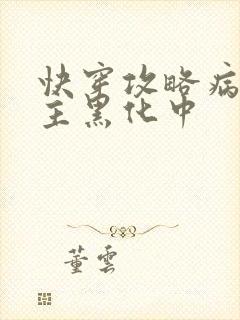 快穿攻略病
主黑化中
董雲